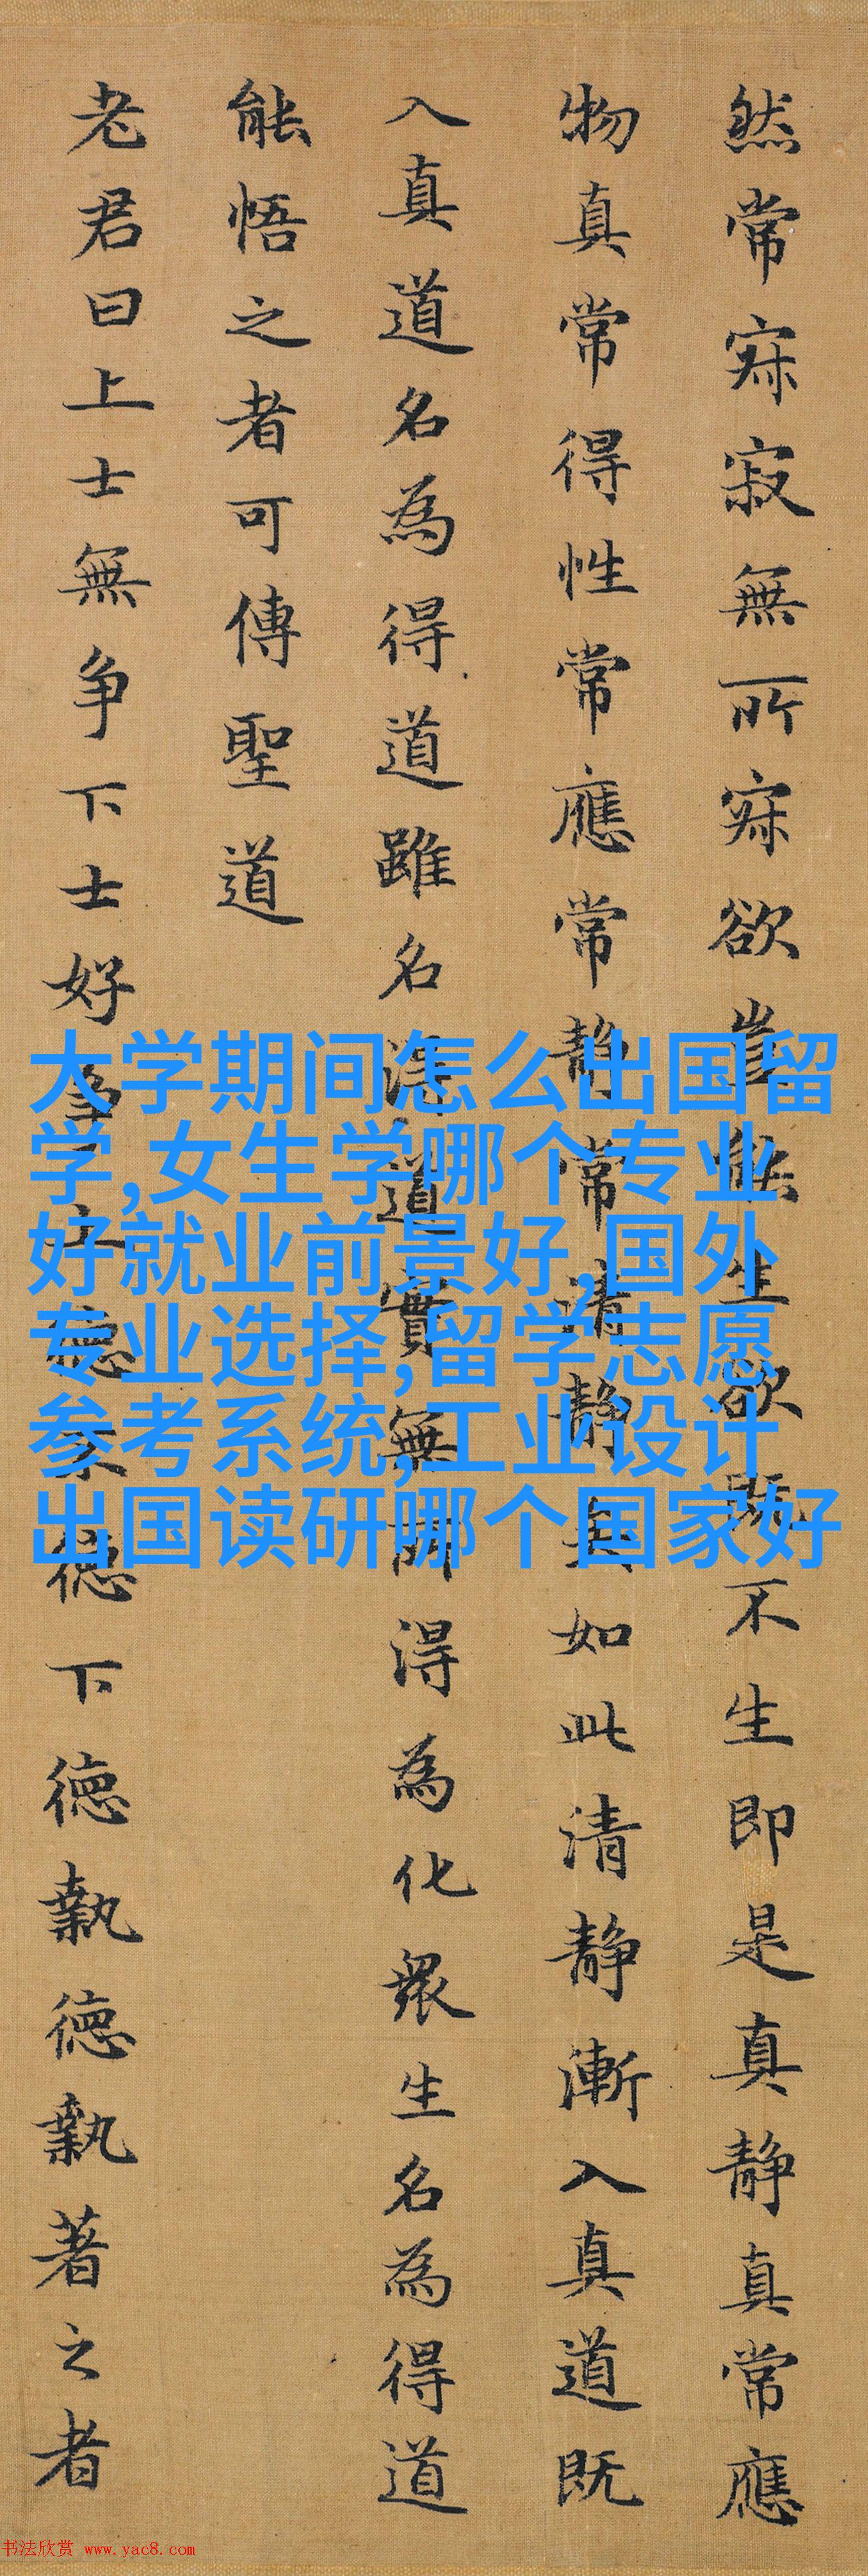 然常寂寂無所寂欲豈能生欲既不生即是真静真常應
物真常得性常應常静常清静矣如此清静漸入真道既
入真道名為得道雖名得道實無所得為化衆生名為得道
能悟之者可傳聖道
老君曰上士無争下士好争上德不德下德執德執著之者
大学期间怎么出国留
学,女生学哪个专业
好就业前景好,国外
专业选择,留学志愿
参考系统,工业设计
出国读研哪个国家好
书法欣赏 www.yac8.com